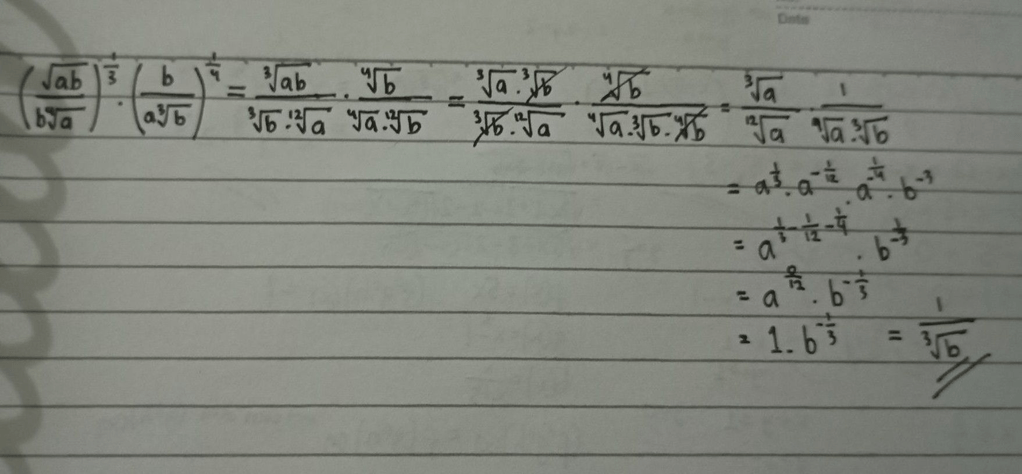 Date
(√ab / b⁴√a)^(1/3) · (b / a³√b)^(1/4) = ³√ab / ³√b·¹²√a · ⁴√b / ⁴√a·¹²√b = ³√a·³√b / ³√b·¹²√a · ⁴√b / ⁴√a·³√b·⁴√b = ³√a / ¹²√a · 1 / ⁴√a·³√b
= a^(1/3) · a^(-1/12) · a^(-1/4) · b^(-3)
= a^(1/3 - 1/12 - 1/4) · b^(-1/3)
= a^(0/12) · b^(-1/3)
= 1 · b^(-1/3) = 1 / ³√b